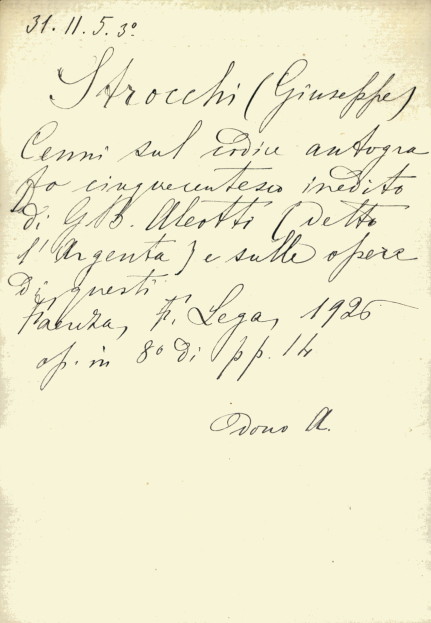 31. 11. 5. 3º
Strocchi (Giuseppe)
Cenni sul codice autogra
fo cinquecentesco inedito
di G. B. Aleotti (detto
l'Argenta) e sulle opere
di questi
Faenza, F. Lega, 1926
op. in 8º di pp. 14
Dono A.